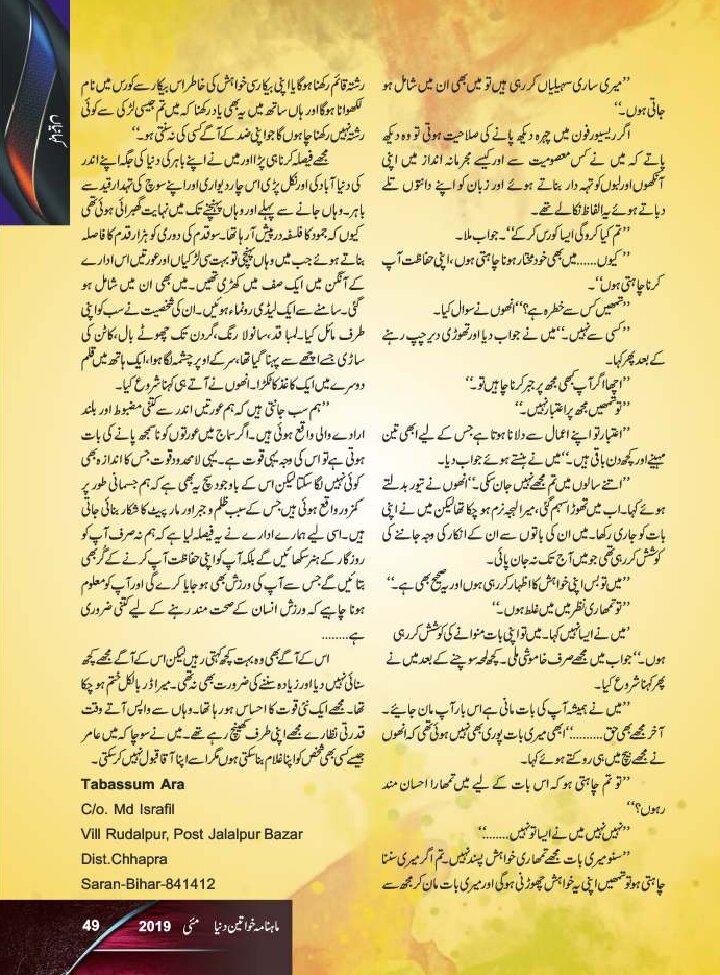 ’’میری ساری سہیلیاں کر رہی ہیں تو میں بھی ان میں شامل ہو
جاتی ہوں۔‘‘
اگر ریسیور فون میں چہرہ دیکھ پانے کی صلاحیت ہوتی تو وہ دیکھ
پاتے کہ میں نے کس معصومیت سے اور کیسے مجرمانہ انداز میں اپنی
آنکھوں اور لبوں کو تہہ دار بناتے ہوئے اور زبان کو اپنے دانتوں تلے
دباتے ہوئے یہ الفاظ نکالے تھے۔
’’تم کیا کروگی ایسا کورس کر کے‘‘۔ جواب ملا۔
’’کیوں.......میں بھی خود مختار ہونا چاہتی ہوں، اپنی حفاظت آپ
کرنا چاہتی ہوں‘‘۔
’’تمھیں کس سے خطرہ ہے؟‘‘ انھوں نے سوال کیا۔
’’کسی سے نہیں۔‘‘ میں نے جواب دیا اور تھوڑی دیر چپ رہنے
کے بعد پھر کہا۔
’’اچھا اگر آپ کبھی مجھ پر جبر کرنا چاہیں تو۔‘‘
’’تو تمھیں مجھ پر اعتبار نہیں۔‘‘
’’اعتبار تو اپنے اعمال سے دلانا ہوتا ہے جس کے لیے ابھی تین
مہینے اور کچھ دن باقی ہیں۔‘‘ میں نے ہنستے ہوئے جواب دیا۔
’’اتنے سالوں میں تم مجھے نہیں جان سکی۔‘‘ انھوں نے تیور بدلتے
ہوئے کہا۔ اب میں تھوڑا سہم گئی، میرا لہجہ نرم ہو چکا تھا لیکن میں نے اپنی
بات کو جاری رکھا۔ میں ان کی باتوں سے ان کے انکار کی وجہ جاننے کی
کوشش کر رہی تھی جو میں آج تک نہ جان پائی۔
’’میں تو بس اپنی خواہش کا اظہار کر رہی ہوں اور یہ صحیح بھی ہے۔‘‘
’’تو تمھاری نظر میں میں غلط ہوں۔‘‘
’میں نے ایسا نہیں کہا۔ میں تو اپنی بات منوانے کی کوشش کر رہی
ہوں۔‘‘ جواب میں مجھے صرف خاموشی ملی۔ کچھ لمحہ سوچنے کے بعد میں نے
پھر کہنا شروع کیا۔
’’میں نے ہمیشہ آپ کی بات مانی ہے اس بار آپ مان جائیے۔
آخر مجھے بھی حق..........‘‘ ابھی میری بات پوری بھی نہیں ہوئی تھی کہ انھوں
نے مجھے بیچ میں ہی روکتے ہوئے کہا۔
’’تو تم چاہتی ہو کہ اس بات کے لیے میں تمھارا احسان مند
رہوں؟‘‘
’’نہیں نہیں میں نے ایسا تو نہیں........‘‘
’’سنو میری بات مجھے تمھاری خواہش پسند نہیں۔ تم اگر میری سننا
چاہتی ہو تو تمھیں اپنی یہ خواہش چھوڑنی ہوگی اور میری بات مان کر مجھ سے
رشتہ قائم رکھنا ہوگا یا اپنی بیکار سی خواہش کی خاطر اس بیکار سے کورس میں نام
لکھوانا ہوگا اور ہاں ساتھ میں یہ بھی یاد رکھنا کہ میں تم جیسی لڑکی سے کوئی
رشتہ نہیں رکھنا چاہوں گا جو اپنی ضد کے آگے کسی کی نہ سنتی ہو۔‘‘
مجھے فیصلہ کرنا ہی پڑا اور میں نے اپنے باہر کی دنیا کی جگہ اپنے اندر
کی دنیا آباد کی اور نکل پڑی اس چار دیواری اور اپنے سوچ کی تہدار قید سے
باہر۔ وہاں جانے سے پہلے اور وہاں پہنچنے تک میں نہایت گھبرائی ہوئی تھی
کیوں کہ جمود کا فلسفہ در پیش آ رہا تھا۔ سو قدم کی دوری کو ہزار قدم کا فاصلہ
بتاتے ہوئے جب میں وہاں پہنچی تو بہت سی لڑکیاں اور عورتیں اس ادارے
کے آنگن میں ایک صف میں کھڑی تھیں۔ میں بھی ان میں شامل ہو
گئی۔ سامنے سے ایک لیڈی رونما ہوئیں۔ ان کی شخصیت نے سب کو اپنی
طرف مائل کیا۔ لمبا قد، سانولا رنگ، گردن تک چھوٹے بال، کاٹن کی
ساڑی جسے اچھے سے پہنا گیا تھا، سر کے اوپر چشمہ لگا ہوا، ایک ہاتھ میں قلم
دوسرے میں ایک کاغذ کا ٹکڑا۔ انھوں نے آتے ہی کہنا شروع کیا۔
’’ہم سب جانتی ہیں کہ ہم عورتیں اندر سے کتنی مضبوط اور بلند
ارادے والی واقع ہوئی ہیں۔ اگر سماج میں عورتوں کو نا سمجھ پانے کی بات
ہوتی ہے تو اس کی وجہ یہی قوت ہے۔ یہی لا محدود قوت جس کا اندازہ بھی
کوئی نہیں لگا سکتا لیکن اس کے باوجود سچ یہ بھی ہے کہ ہم جسمانی طور پر
کمزور واقع ہوئی ہیں جس کے سبب ظلم و جبر اور مار پیٹ کا شکار بنائی جاتی
ہیں۔ اسی لیے ہمارے ادارے نے یہ فیصلہ لیا ہے کہ ہم نہ صرف آپ کو
روزگار کے ہنر سکھائیں گے بلکہ آپ کو اپنی حفاظت آپ کرنے کے گر بھی
بتائیں گے جس سے آپ کی ورزش بھی ہو جایا کرے گی اور آپ کو معلوم
ہونا چاہیے کہ ورزش انسان کے صحت مند رہنے کے لیے کتنی ضروری
ہے........
اس کے آگے بھی وہ بہت کچھ کہتی رہیں لیکن اس کے آگے مجھے کچھ
سنائی نہیں دیا اور زیادہ سننے کی ضرورت بھی نہ تھی۔ میرا ڈر بالکل ختم ہو چکا
تھا۔ مجھے ایک نئی قوت کا احساس ہو رہا تھا۔ وہاں سے واپس آتے وقت
قدرتی نظارے مجھے اپنی طرف کھینچ رہے تھے۔ میں نے سوچا کہ میں عامر
جیسے کسی بھی شخص کو اپنا غلام بنا سکتی ہوں مگر اسے اپنا آقا قبول نہیں کر سکتی۔
Tabassum Ara
C/o. Md Israfil
Vill Rudalpur, Post Jalalpur Bazar
Dist.Chhapra
Saran-Bihar-841412
ماہنامہ خواتین دنیا مئی 2019 49